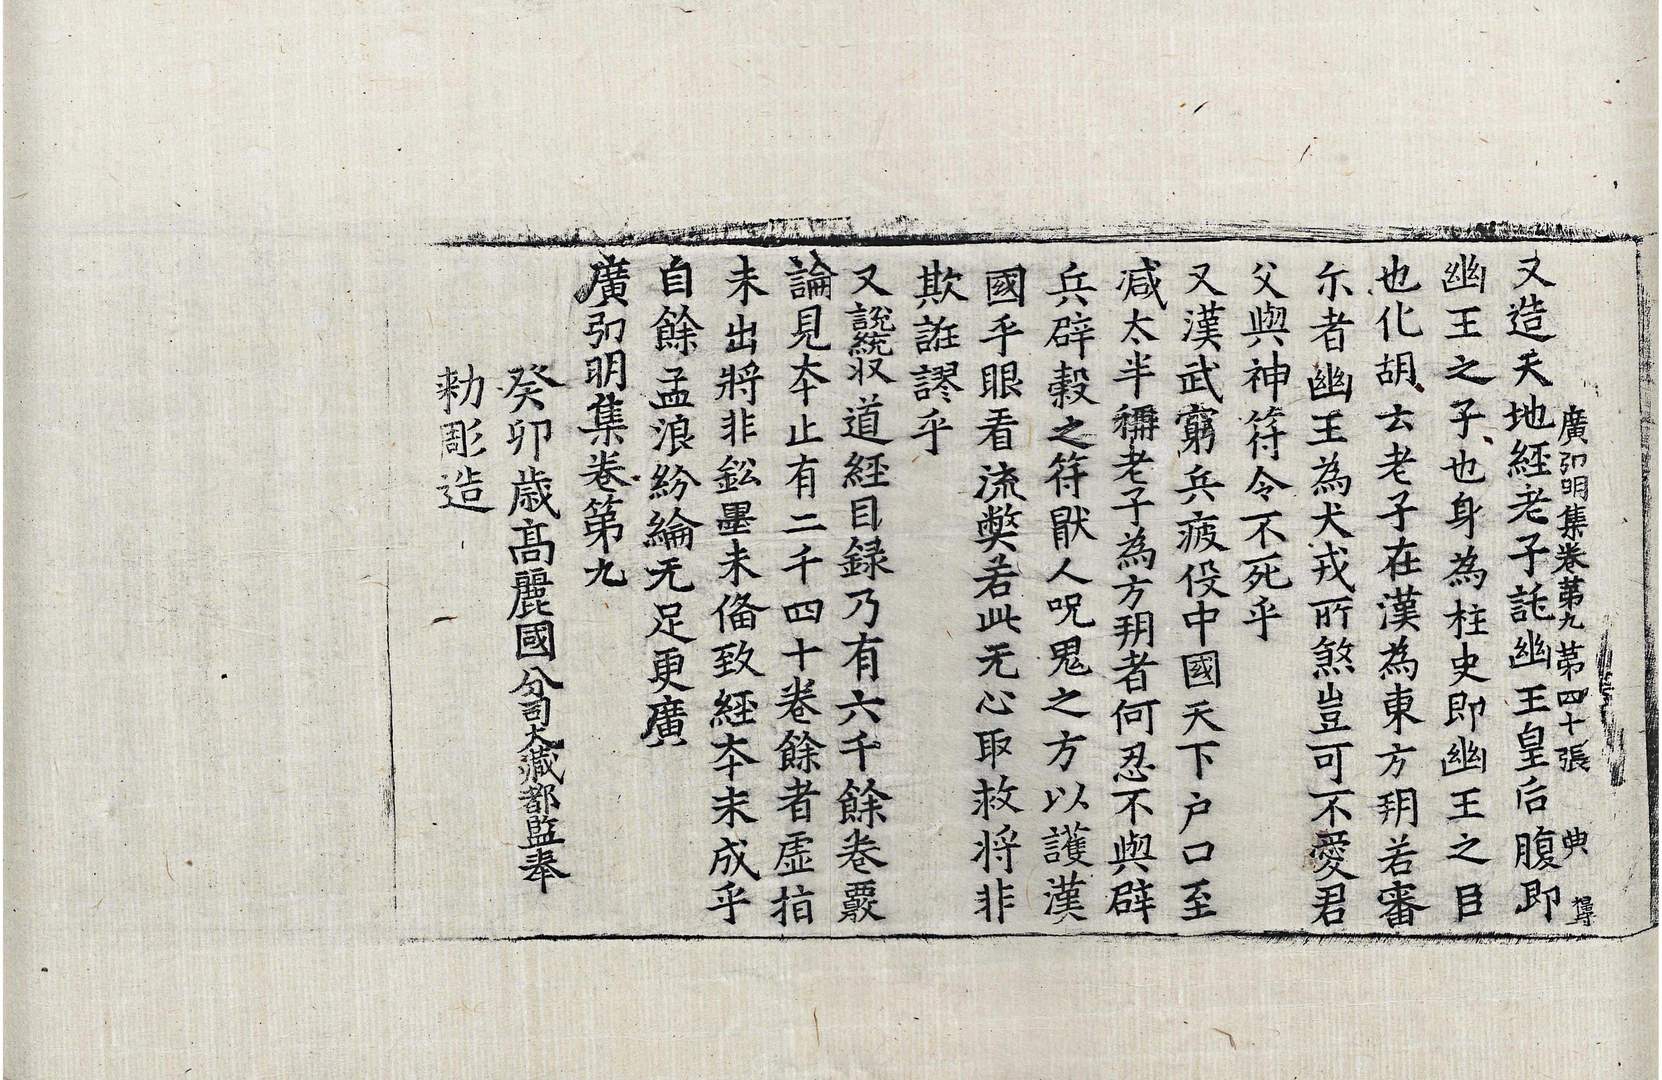 廣弘明集卷第九 第四十張 典
又造天地經老子託幽王皇后腹即
幽王之子也身為柱史即幽王之目
也化胡云老子在漢為東方玥若審
尒者幽王為犬戎所煞豈可不愛君
父與神符令不死乎
又漢武窮兵疲伇中國天下户口至
减太半稱老子為方玥者何忍不與辟
兵辟穀之符猒人呪鬼之方以護漢
國乎眼看流弊若此无心取救将非
欺誑謬乎
又說統収道經目録乃有六千餘卷覈
論見夲止有二千四十卷餘者虛指
未出將非鈆墨未俻致經夲未成乎
自餘孟浪紛綸无足更廣
廣弘明集卷第九
癸卯歲髙麗國分司大藏都監奉
勑彫造